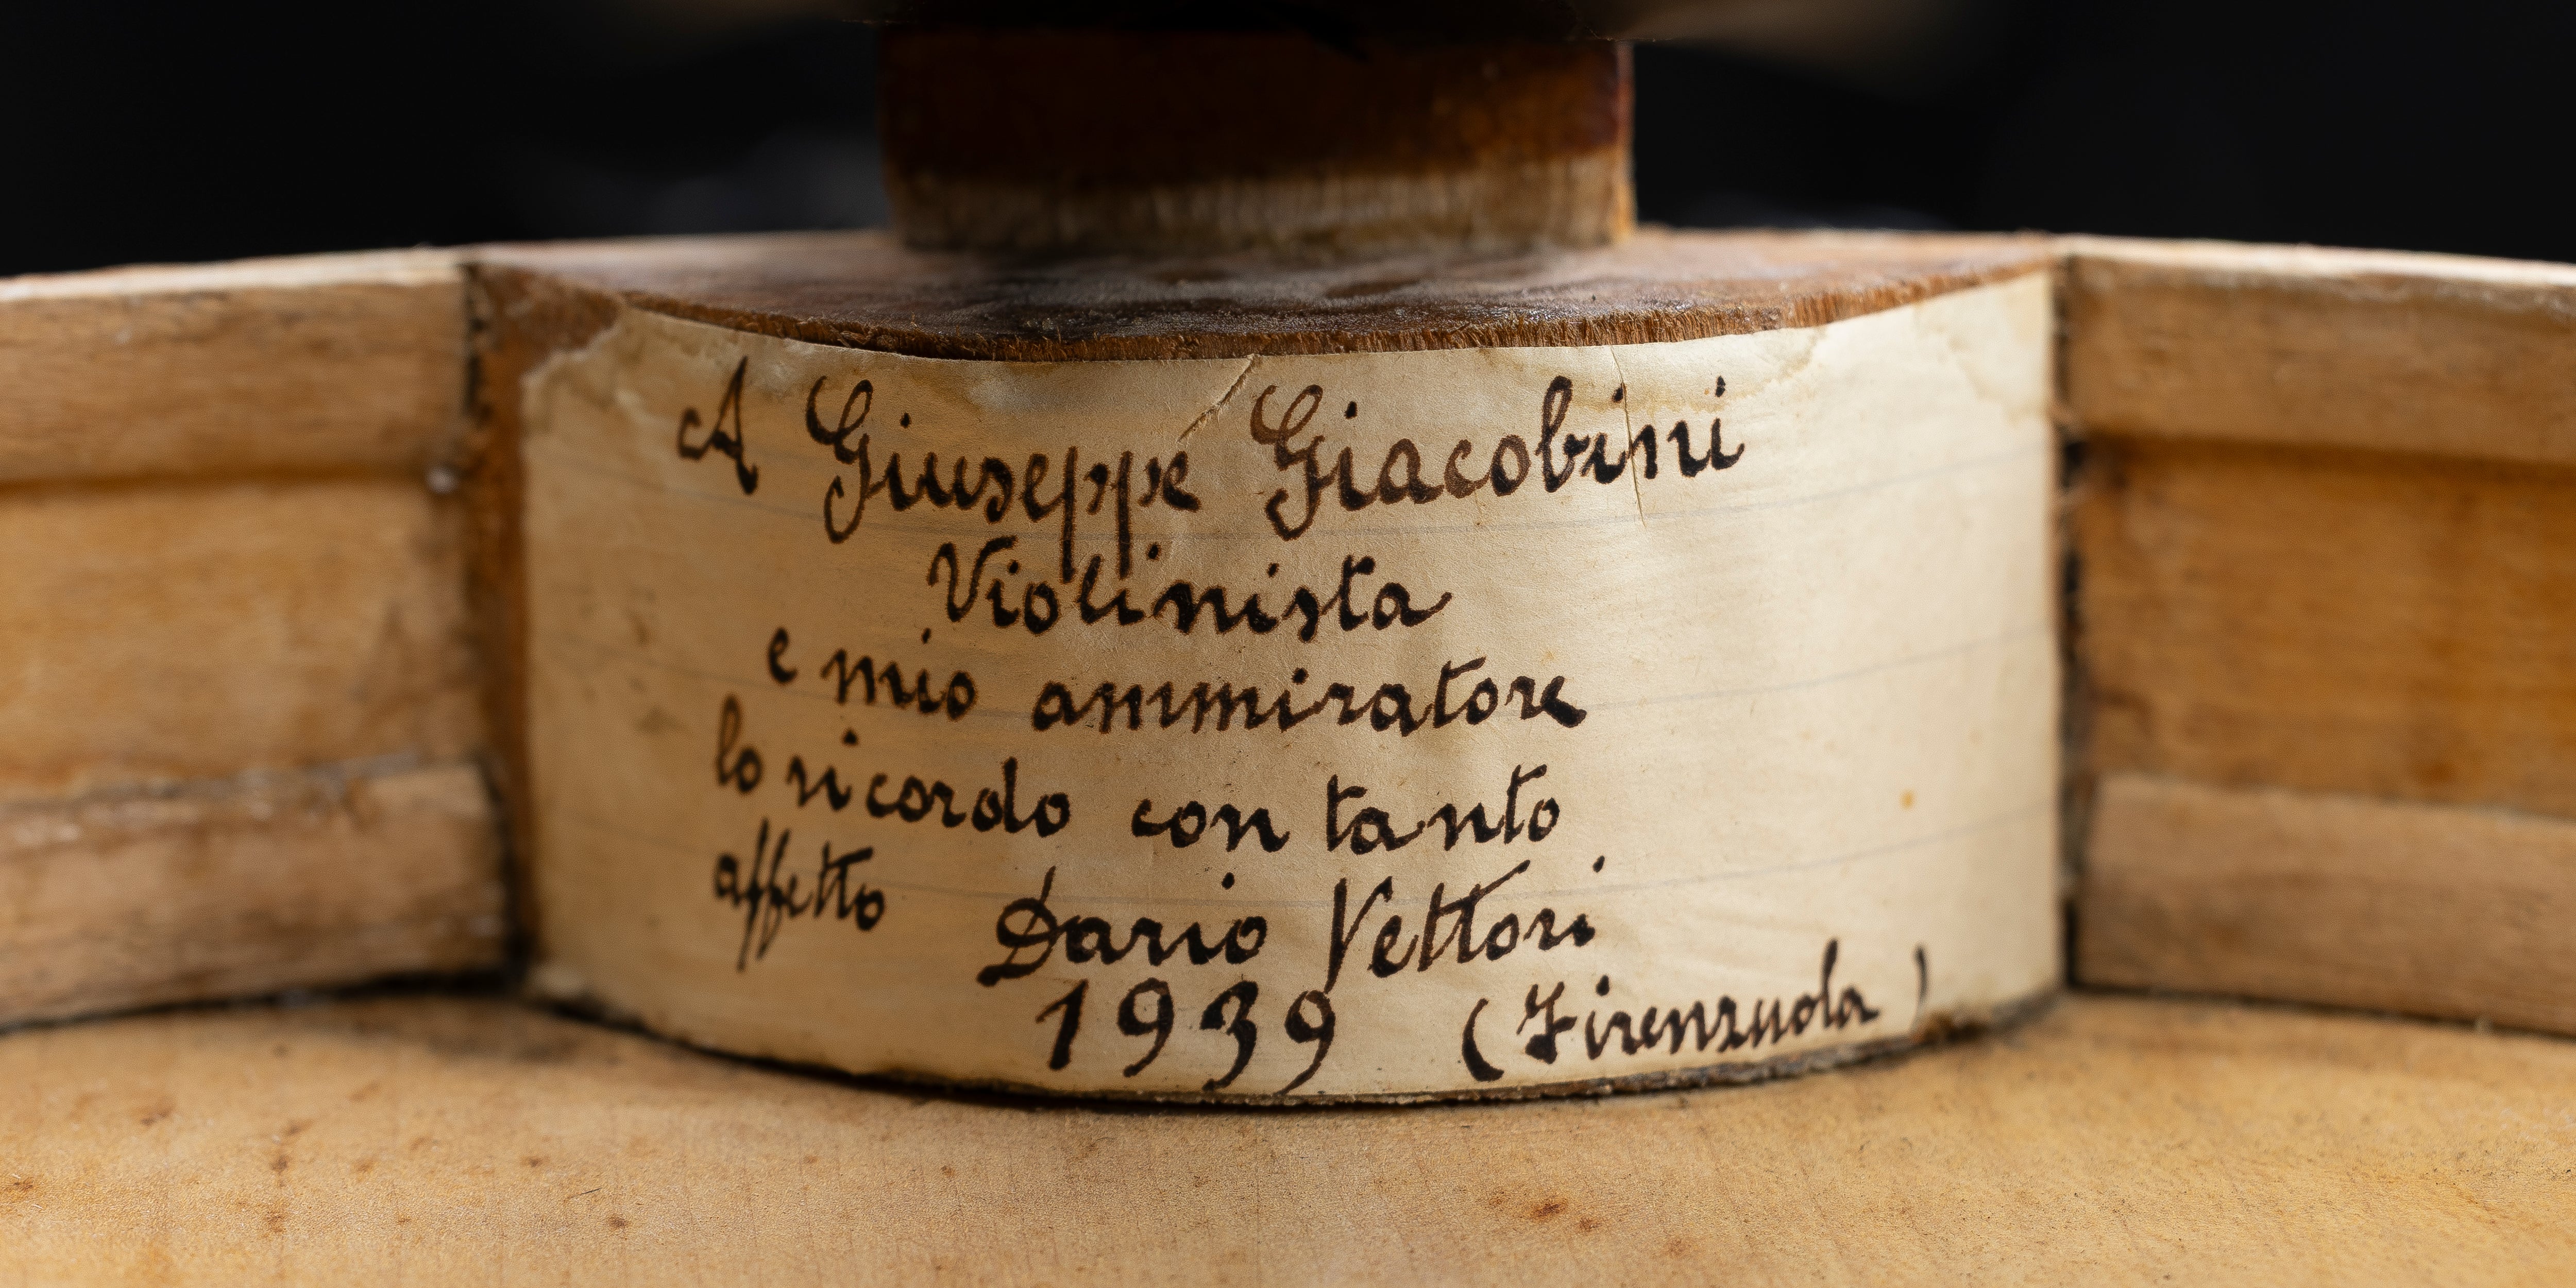 A Giuseppe Giacobini
Violinista
e mio ammiratore
lo ricordo con tanto
affetto Dario Vettori
1939 (Firenzuola)